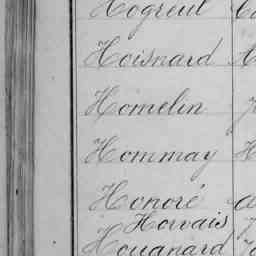 Hogreul
Hoisnard
Homelin
Hommay
Honoré
Horvais
Houanard